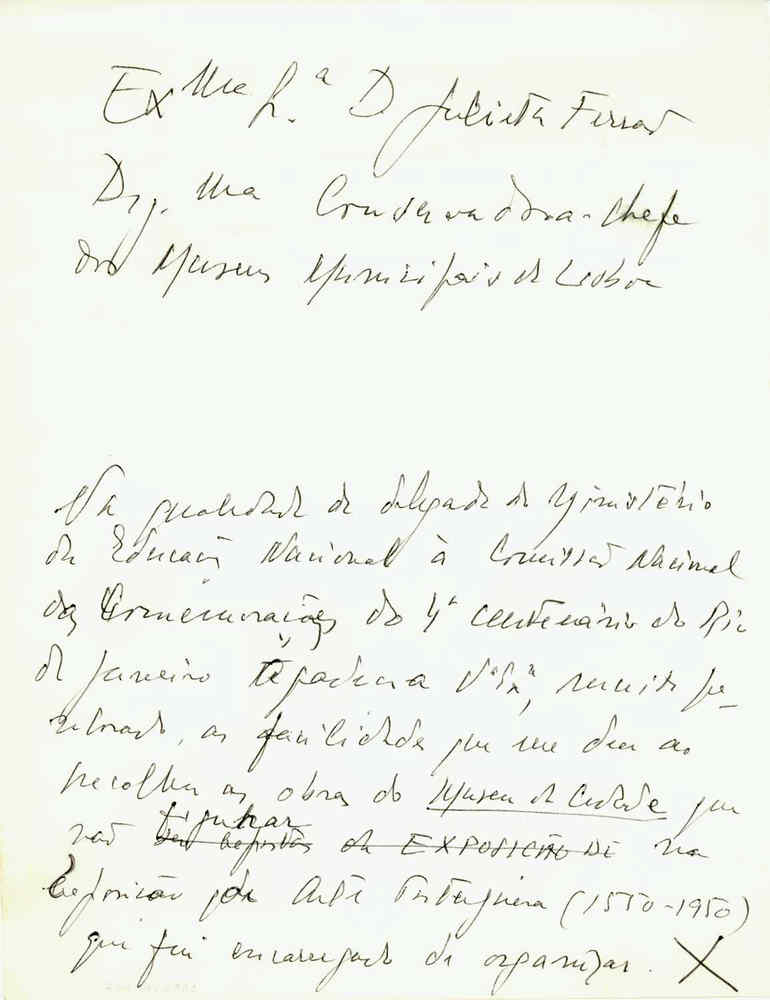 Exma Sr.ª D Julieta Ferrão
Dig.ma Conservadora-chefe
dos Museus Municipais de Lisboa
Na qualidade de delegado do Ministério
da Educação Nacional à Comissão Nacional
das Comemorações do 4º centenário do Rio
de Janeiro agradeço a V. Ex.ª, muito pe-
nhorado, as facilidades que me deu ao
escolher as obras do Museu da Cidade que
vão figurar
da EXPOSIÇÃO DE na
Exposição de Arte Portuguesa (1550-1950)
que fui encarregado de organizar. X